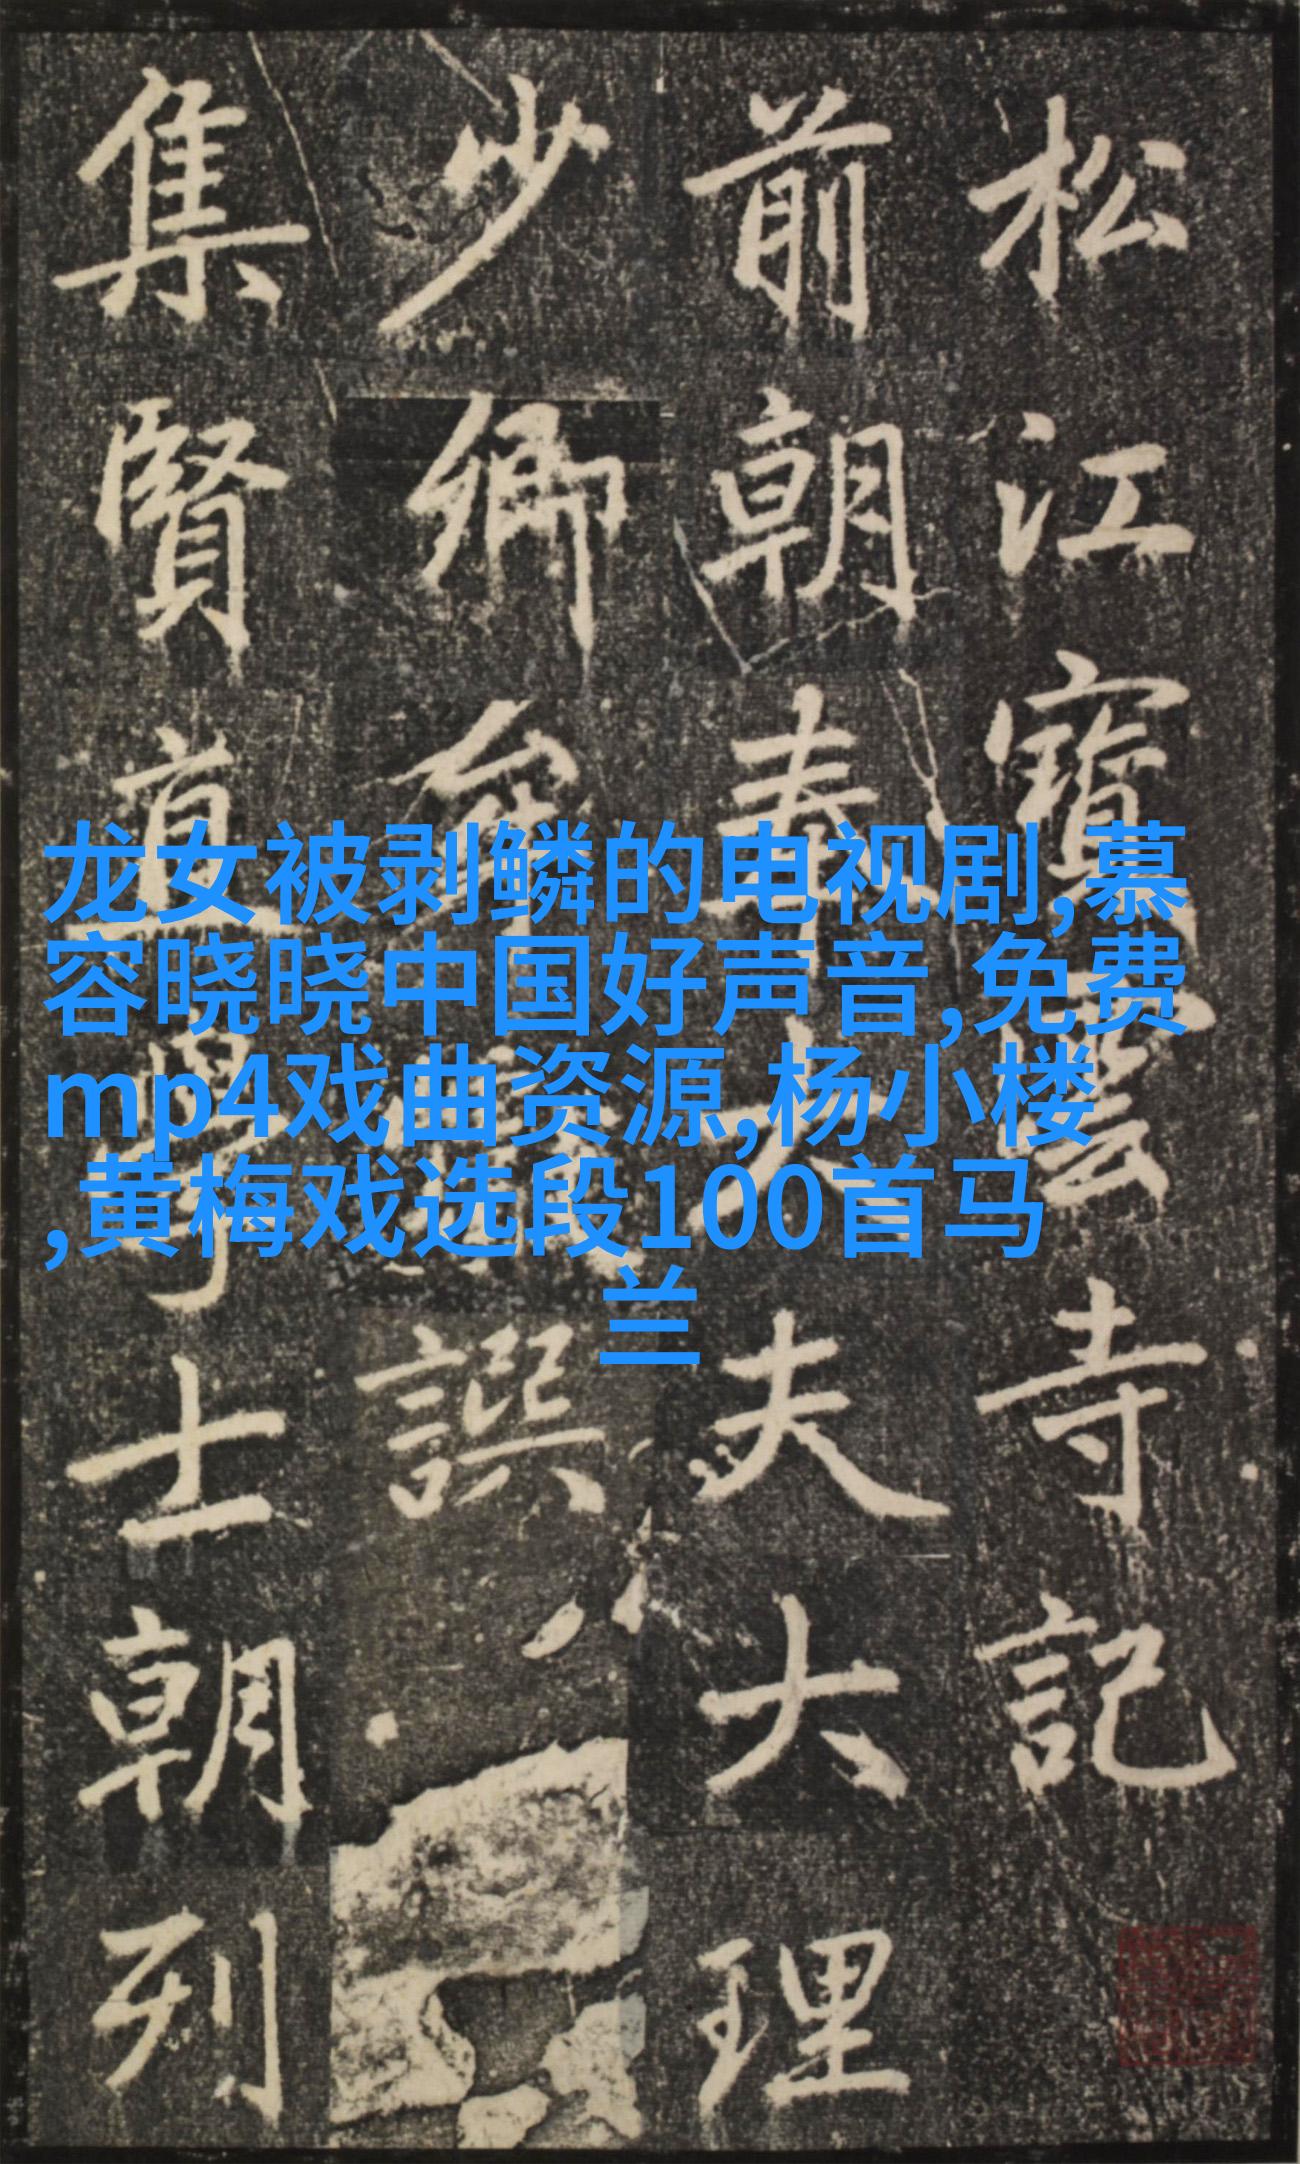 松江寶雲寺記
前朝奉大夫大理
少卿牟譔
集賢直學士朝列
龙女被剥鳞的电视剧,慕
容晓晓中国好声音,免费
mp4戏曲资源,杨小楼
,黄梅戏选段100首马
兰